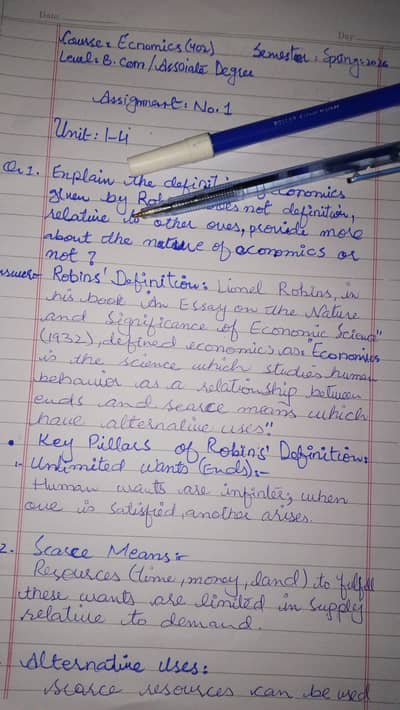 Date
Day
Course: Ecnomics (402) Semester: Spring-2026
Level: B.Com/Assoiate Degree
Assignment: No. 1
Unit: 1-4
Q.1. Explain the definit economics
given by Rob does not definition,
relative to other oves, provide more
about the nature of economics or
not?
nswer:- Robins' Definition: Lionel Robins, in
his book "An Essay on the Nature
and Significance of Economic Science"
(1932), defined economics as: "Economics
is the science which studies human
behavior as a relationship between
ends and scarce means which
have alternative uses".
• Key Pillars of Robins' Definition:
:- Unlimited wants (Ends):-
Human wants are infintee; when
one is satisfied, another arises.
2. Scarce Means:-
Resources (time, money, land) to fulfill
these wants are limited in supply
relative to demand.
Alternative Uses:
Scarce resources can be used